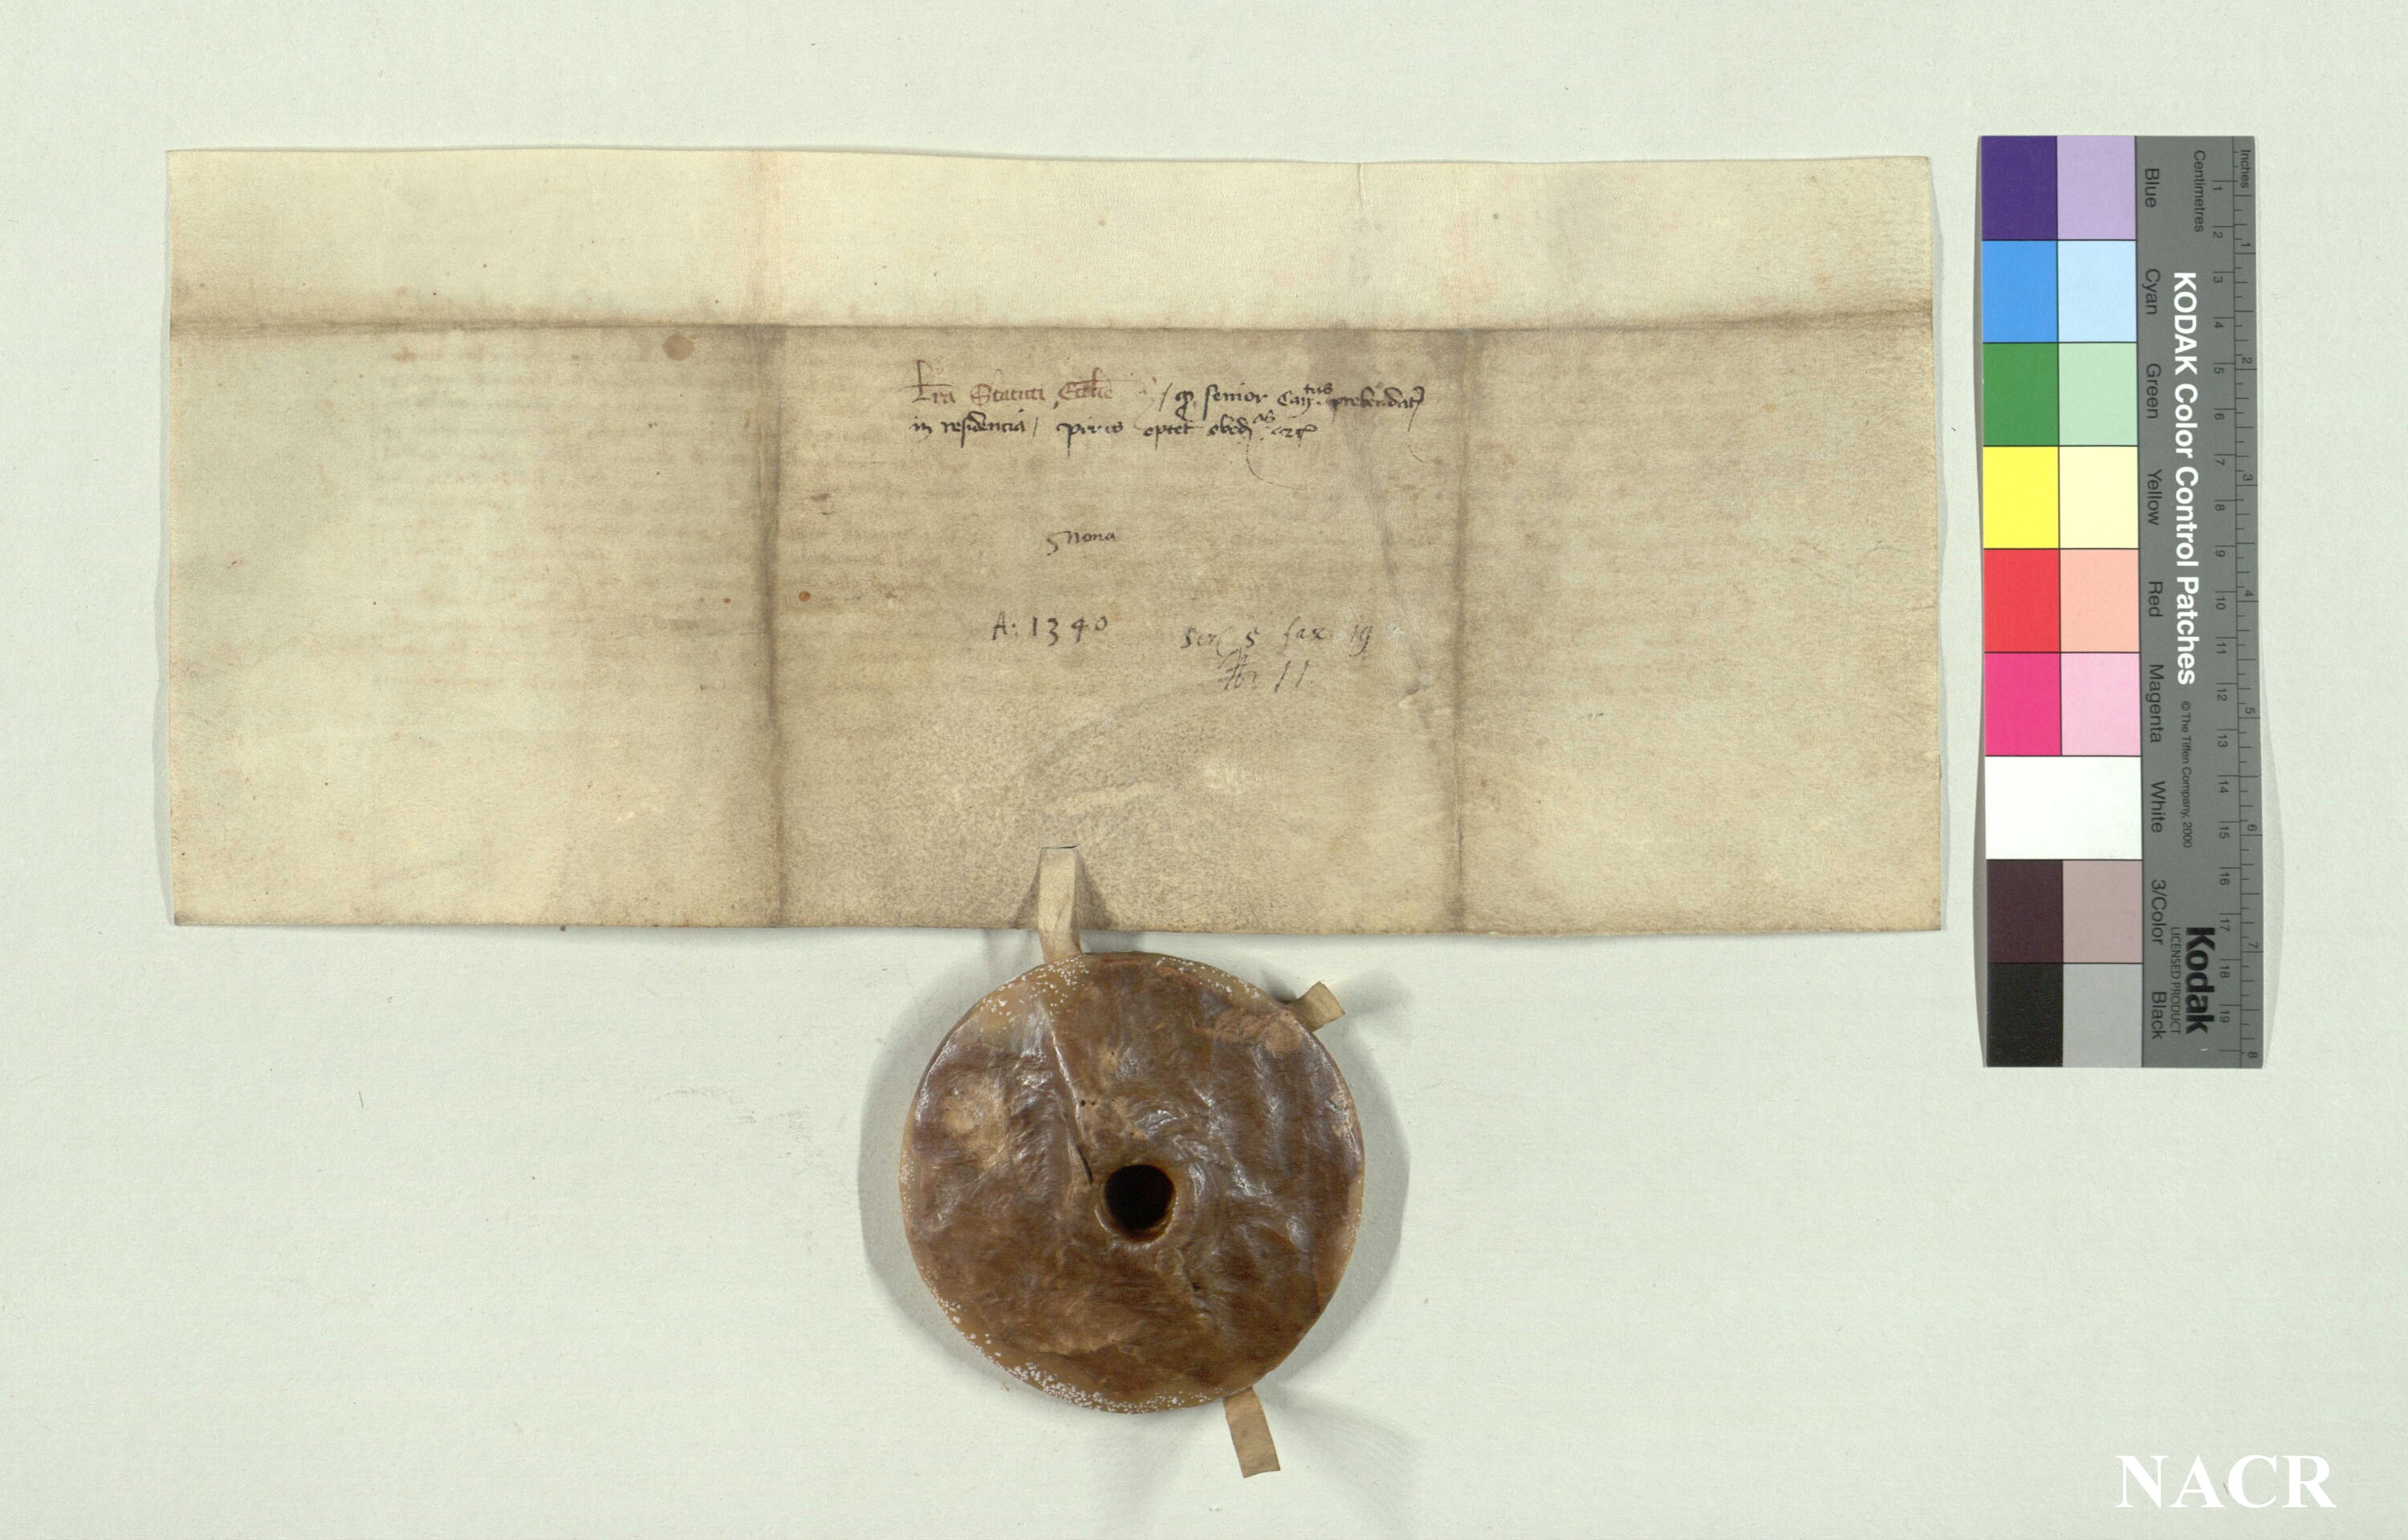 Lra Statuti Eccl̄ie / ꝙ senior Can.tus prebendatꝰ
in residencia / prius optet obed
nona
A: 1340
Scrl 5 fax 19
Nr 11
Inches
Centimetres
1 2 3 4 5 6 7 8 9 10 11 12 13 14 15 16 17 18 19
1 2 3 4 5 6 7 8
KODAK Color Control Patches © The Tiffen Company, 2000
Kodak
LICENSED PRODUCT
Blue Cyan Green Yellow Red Magenta White 3/Color Black
NACR